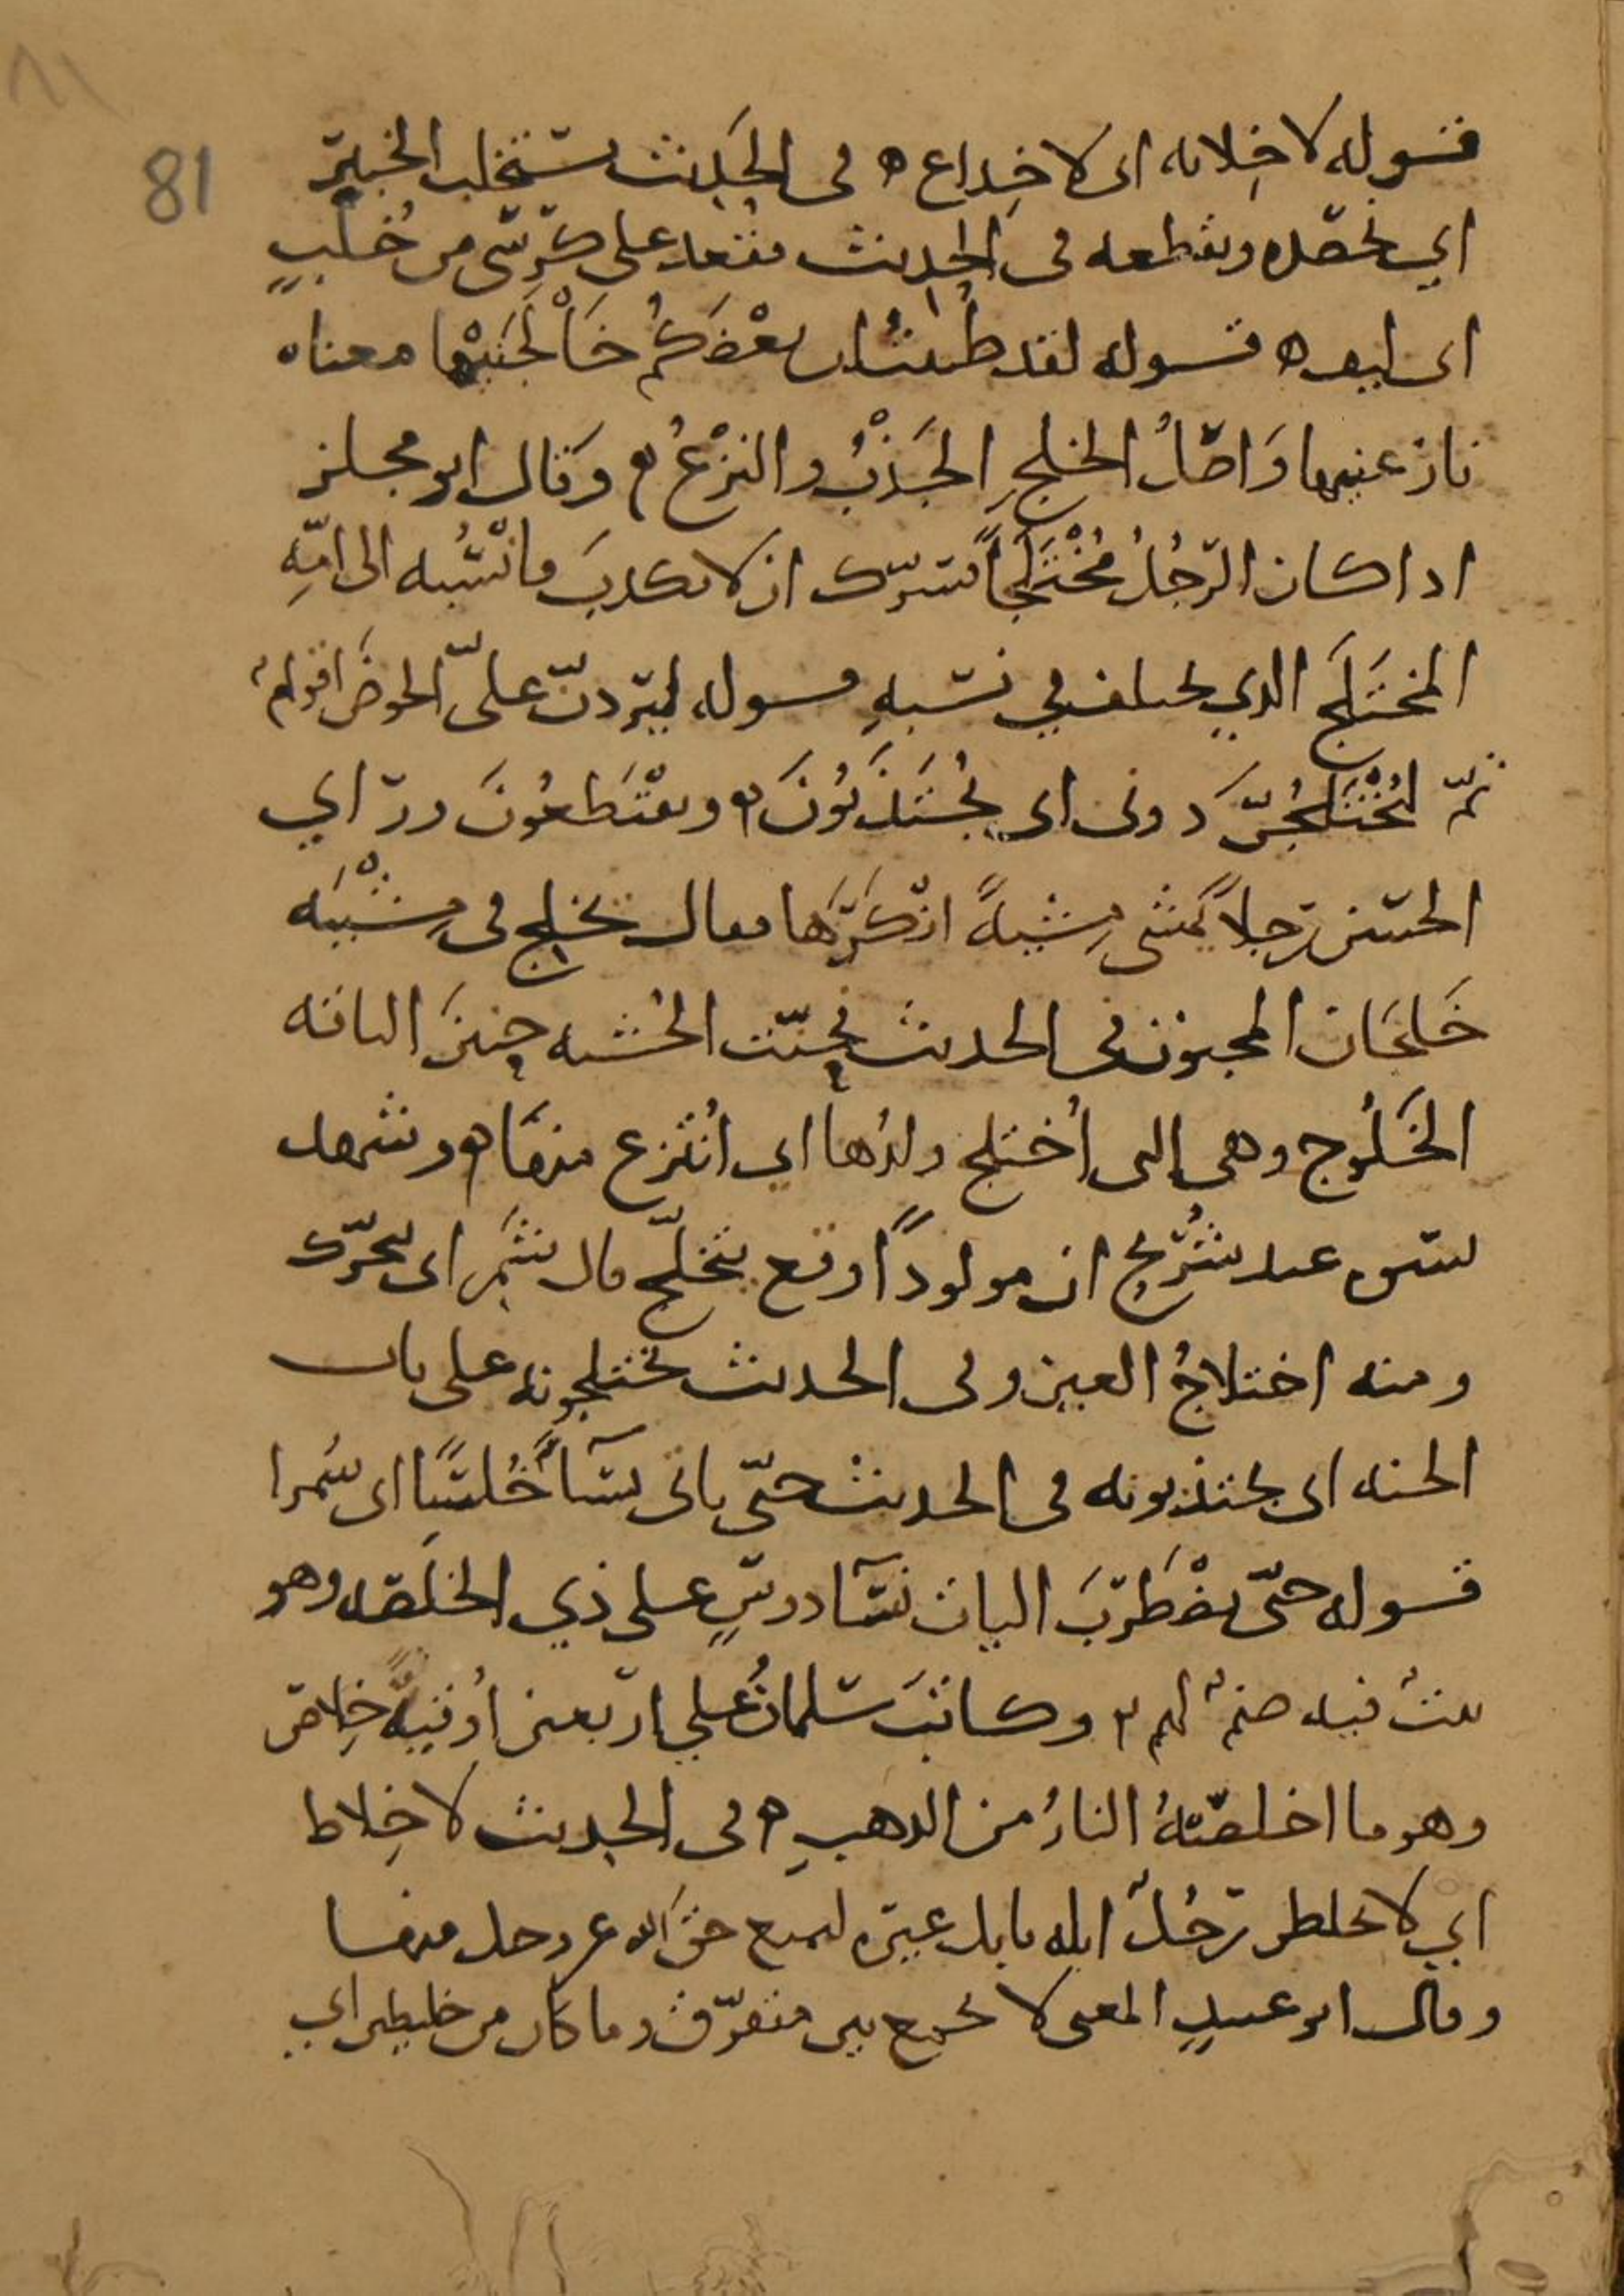 81
قوله لا خِلابه اى لا خِداع ه فى الحَديث نستخلب الخبير
اي نحصده ونقطعه فى الحديث فقعد على كرسّى من خُلْبٍ
اى ليف ه قوله لقد ظننتُ ان بعْضَكُم خَاْلَجَنيْها معناه
نازعنيها وَاصْلُ الخلجِ الجَذْبُ والنزْعُ ه وقال ابو مجلز
اذا كان الرّجُلُ مُخْتَلَجاً فسرّك ان لا تكذبَ فانْسُبه الى امّهِ
المختَلَج الذي يختلف في نسَبهِ قوله ليَردنّ علىّ الحوضَ اقوامٌ
ثمّ ليُخْتَلَجُنّ دونى اى يُجْتَذَبُونَ ه ويقْتَطَعُونَ وراي
الحسن رجلاً يمشى مِشْيةً انْكَرَها فقال تخلج فى مِشْيَته
خَلَجَان المجنون فى الحديث فحنّت الخشبه حنينَ الناقه
الخَلُوج وهى التى اُختلج ولدُها اى اُنتُزع منها ه وشهد
نسوه عند شُرَيح ان مولودًا وقع يتخلّج قال شَمِر اى يتحرّك
ومنه اختلاجُ العين وفى الحديث تختلجونه على باب
الجنه اى تجتذبونه فى الحديث حتّى ياتى نسَآءً خُلسًا اى سُمرا
قوله حتّى تضْطَربَ اليات نسَآ دوسٍ على ذي الخلصَه وهو
بيتٌ فيه صنمٌ لهم ه وكاتبَ سَلمانُ على اربعين اُوقيةً خِلاص
وهو ما اخلصَتهُ النارُ من الذهبِ ه فى الحديث لا خِلاط
اي لا يخلط رجُلٌ ابله بابل غيره ليمنع حق الله عز وجل منها
وقال ابو عبيدٍ المعنى لا يجمع بين متفرّق وما كان من خليطين اي